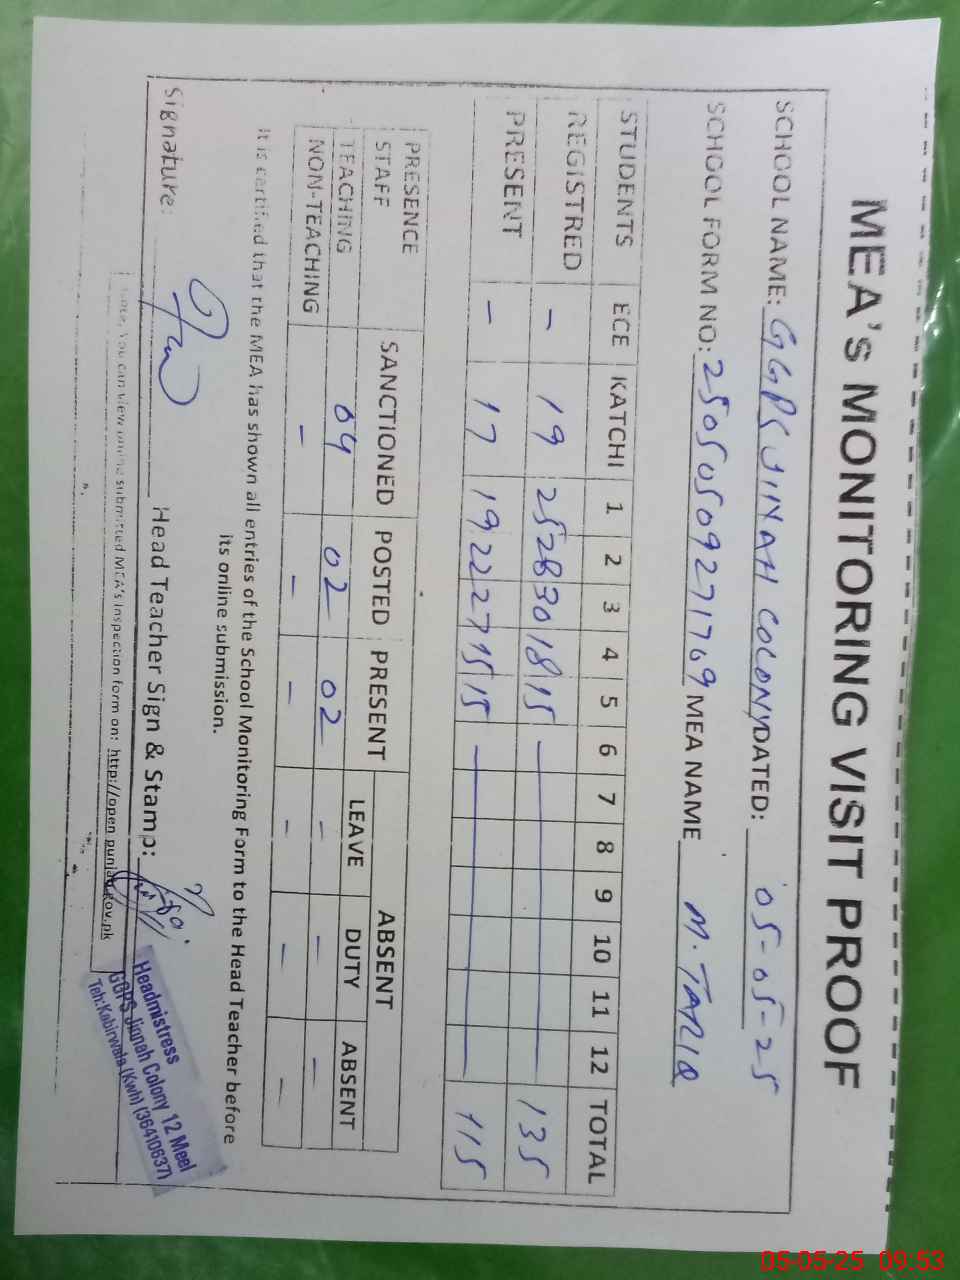 MEA's MONITORING VISIT PROOF
SCHOOL NAME: GGPS JINNAH COLONY DATED: 05-05-25
SCHOOL FORM NO: 25050509271769 MEA NAME M. TARIQ
STUDENTS ECE KATCHI 1 2 3 4 5 6 7 8 9 10 11 12 TOTAL
REGISTRED - 19 25 28 30 18 15 - 135
PRESENT - 17 19 22 27 15 15 - 115
PRESENCE SANCTIONED POSTED PRESENT ABSENT
STAFF LEAVE DUTY ABSENT
TEACHING 04 02 02 - - -
NON-TEACHING - - - - - -
It is certified that the MEA has shown all entries of the School Monitoring Form to the Head Teacher before
its online submission.
Signature: Head Teacher Sign & Stamp:
Headmistress
GGPS Jinnah Colony 12 Meel
Teh:Kabirwala (Kwh) (36410637)
Note. You can view online submitted MEA's Inspection form on: http://open.punjab.gov.pk
05-05-25 09:53